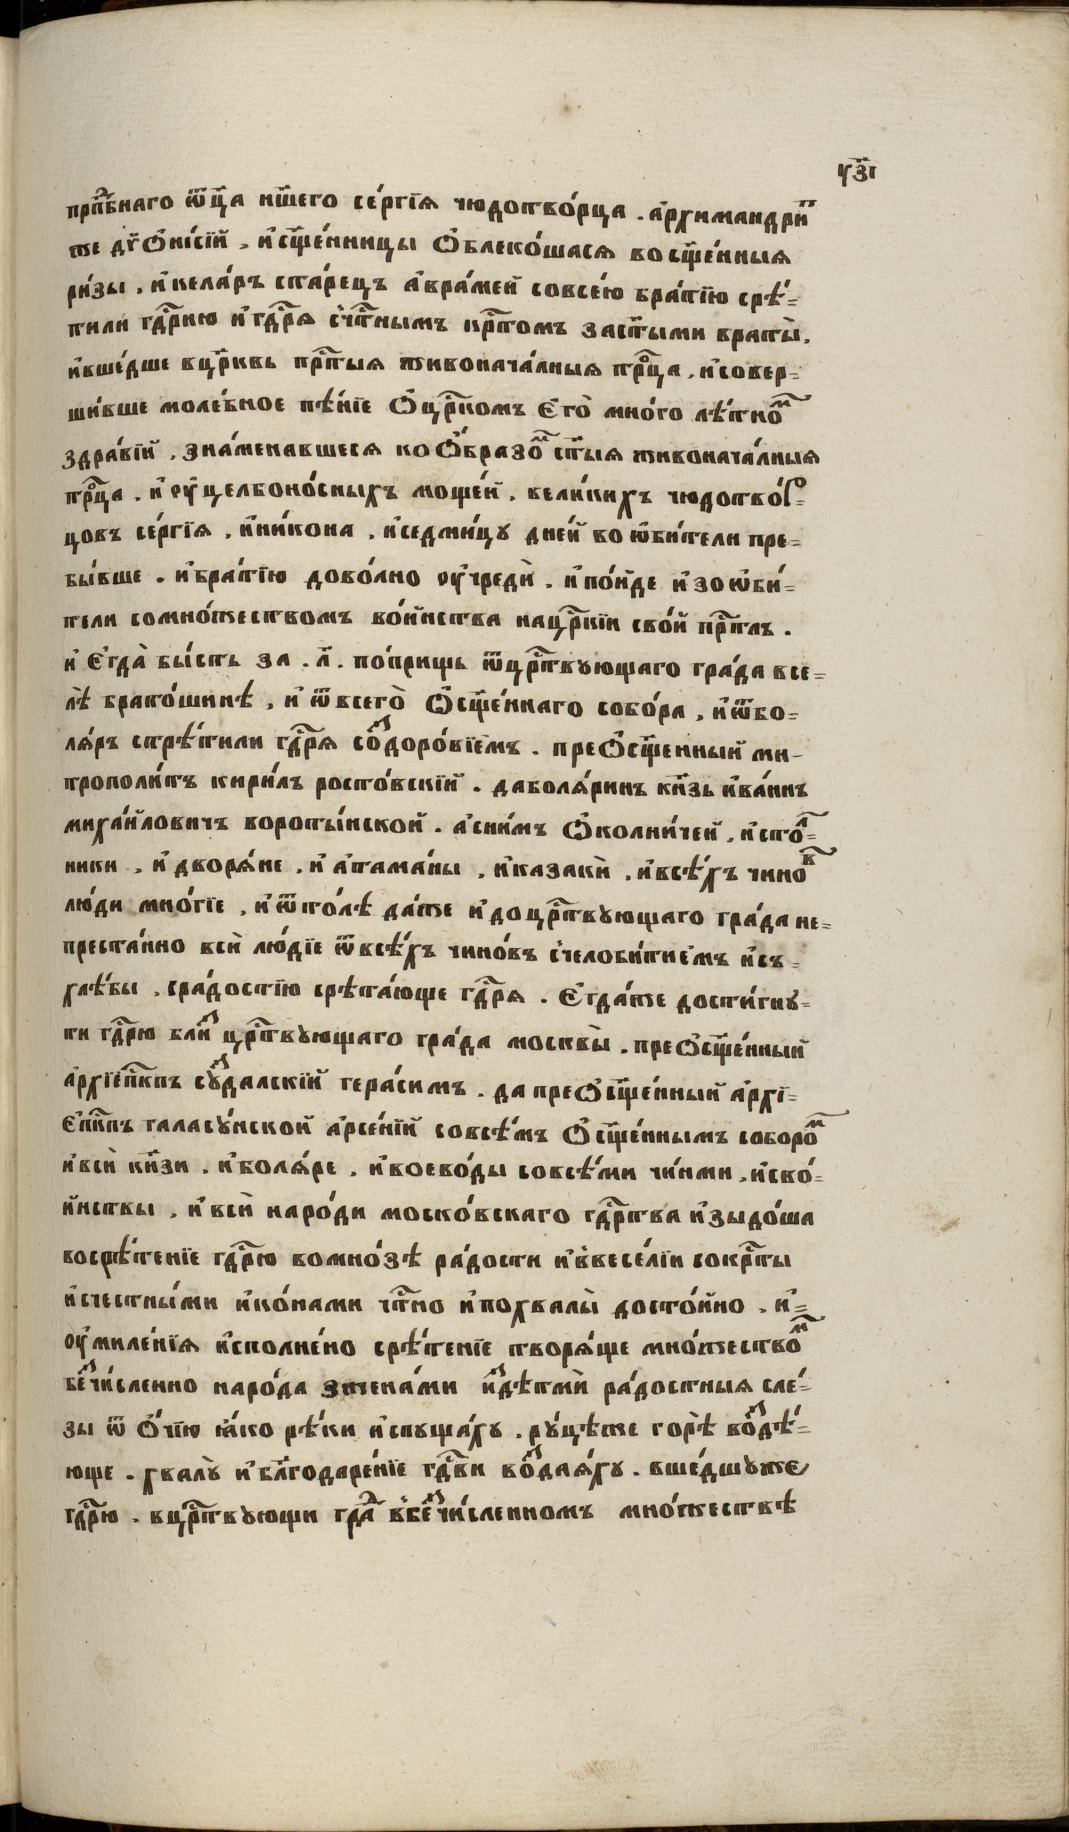 уз҃і
прпⷣбнаго ѿц҃а нш҃его се́ргїѧ чюдотво́рца . а҆рхимандри́ⷮ
же дїѻни́сїй . и҆ сщ҃е́нницы ѻ҆блеко́шасѧ во сщ҃е́нныѧ
ри́зы . и҆ кела́рь ста́рецъ а҆вра́мей совсе́ю бра́тїю срѣ́-
тили гдⷭ҇рню и҆ гдⷭ҇рѧ с чⷭ҇тнымъ крⷭ҇томъ за ст҃ыми враты̀ .
и҆ вше́дше в црⷪ҇ковь прⷭ҇тыѧ живонача́лныѧ трⷪ҇ца . и҆ совер-
ши́вше моле́бное пѣ́нїе ѻ҆ црⷭ҇комъ є҆го̀ мно́го лѣ́тноⷨ
здра́вїй . зна́менавшесѧ ко ѻ҆́бразоⷨ ст҃ыѧ живонача́лныѧ
трⷪ҇ца . и҆ ѹ҆ целбоно́сныхъ моще́й . вели́кихъ чюдотво́ⷬ-
цовъ се́ргїѧ . и҆ ни́кона . и҆ седми́цу дне́й во ѡ҆би́тели пре-
бы́вше . и҆ бра́тїю дово́лно ѹ҆чредѝ . и҆ по́йде и҆зо ѡ҆би́-
тели со мно́жествомъ во́инства на црⷭ҇кїи сво́й прⷭ҇тлъ .
и҆ є҆гда̀ бы́сть за . л҃ . по́прищь ѿ црⷭ҇твующаго гра́да в се-
лѣ̀ брато́шинѣ , и҆ ѿ всего̀ ѻ҆сщ҃е́ннаго собо́ра , и҆ ѿ бо-
лѧ́ръ стрѣ́тили гдⷭ҇рѧ со ⷥдоро́вїемъ . преѻсщ҃енный ми-
трополи́тъ кири́лъ росто́вский . да болѧ́ринъ кн҃зь и҆ва́нъ
миха́йловичъ вороты́нской . а҆ с ни́мъ ѻ҆колни́чей , и҆ стоⷧ-
ники . и҆ дворѧ́не . и҆ а҆тама́ны . и҆ казакѝ . и҆ всѣ́хъ чиноⷡ
лю́ди мно́гїе . и҆ ѿтолѣ да́же и҆ до црⷭ҇твующаго гра́да не-
преста́нно всѝ лю́дїе ѿ всѣ́хъ чино́въ с челоби́тиемъ и҆ съ-
хлѣ́бы . с ра́достїю срѣта́юще гдⷭ҇рѧ . є҆гда́же дости́гну-
ти гдⷭ҇рю блиⷥ црⷭ҇твующаго гра́да москвы̀ . преѻсщ҃е́нный
а҆рхїепⷭ҇кпъ суⷥдалскїй гера́симъ . да преѻсщ҃е́нный а҆рхї-
є҆пⷭ҇кпъ галасу́нской а҆рсе́нїй со всѣ́мъ ѻ҆сщ҃е́ннымъ собороⷨ
и҆ всѝ кн҃зи . и҆ болѧ́ре . и҆ воево́ды со всѣ́ми чи́ими . и҆ с во́-
инствы . и҆ всѝ наро́ди моско́вскаго гдⷭ҇рства и҆зыдо́ша
во срѣ́тенїе гдⷭ҇рю во мно́зѣ ра́дости и҆ в весе́лїи со крⷭ҇ты
и҆ с чесны́ми и҆ко́нами чⷭ҇тно и҆ похвалы̀ досто́йно . и҆-
ѹ҆миле́нїѧ и҆спо́лнено срѣ́тенїе творѧ́ще мно́жествоⷨ
беⷥчи́сленно наро́да з жена́ми иⷥдѣтмѝ ра́достныѧ сле́-
зы ѿ ѻ҆́чїю ꙗ҆́ко рѣ́ки и҆спуща́ху . ру́цѣже горѣ̀ воⷥдѣ́-
юще . хвалу̀ и҆ бл҃годаре́нїе гдⷭ҇ви воⷥдаѧ́ху . вше́дшуже
гдⷭ҇рю . в црⷭ҇твующи граⷣ в беⷥчи́сленномъ мно́жествѣ